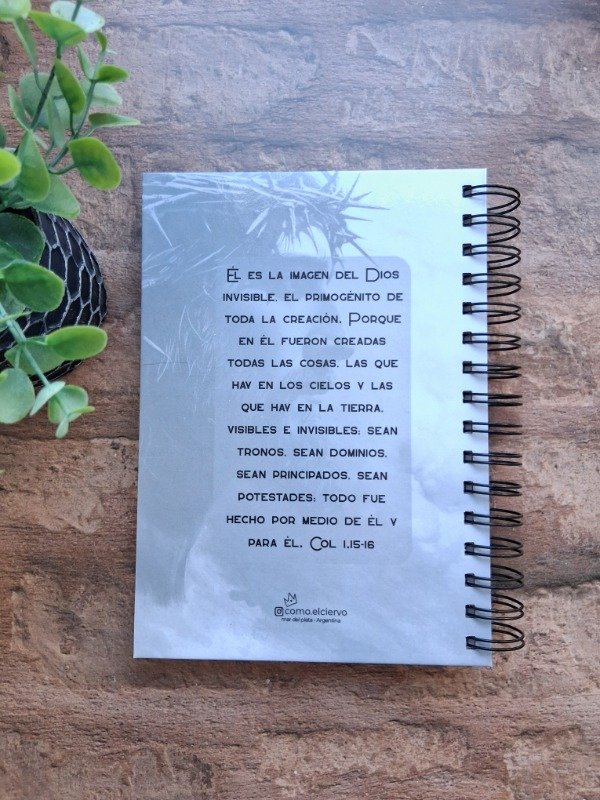 Él es la imagen del Dios
invisible, el primogénito de
toda la creación. Porque
en él fueron creadas
todas las cosas, las que
hay en los cielos y las
que hay en la tierra,
visibles e invisibles; sean
tronos, sean dominios,
sean principados, sean
potestades; todo fue
hecho por medio de él y
para él. Col 1.15-16
como.elciervo
mar del plata - Argentina